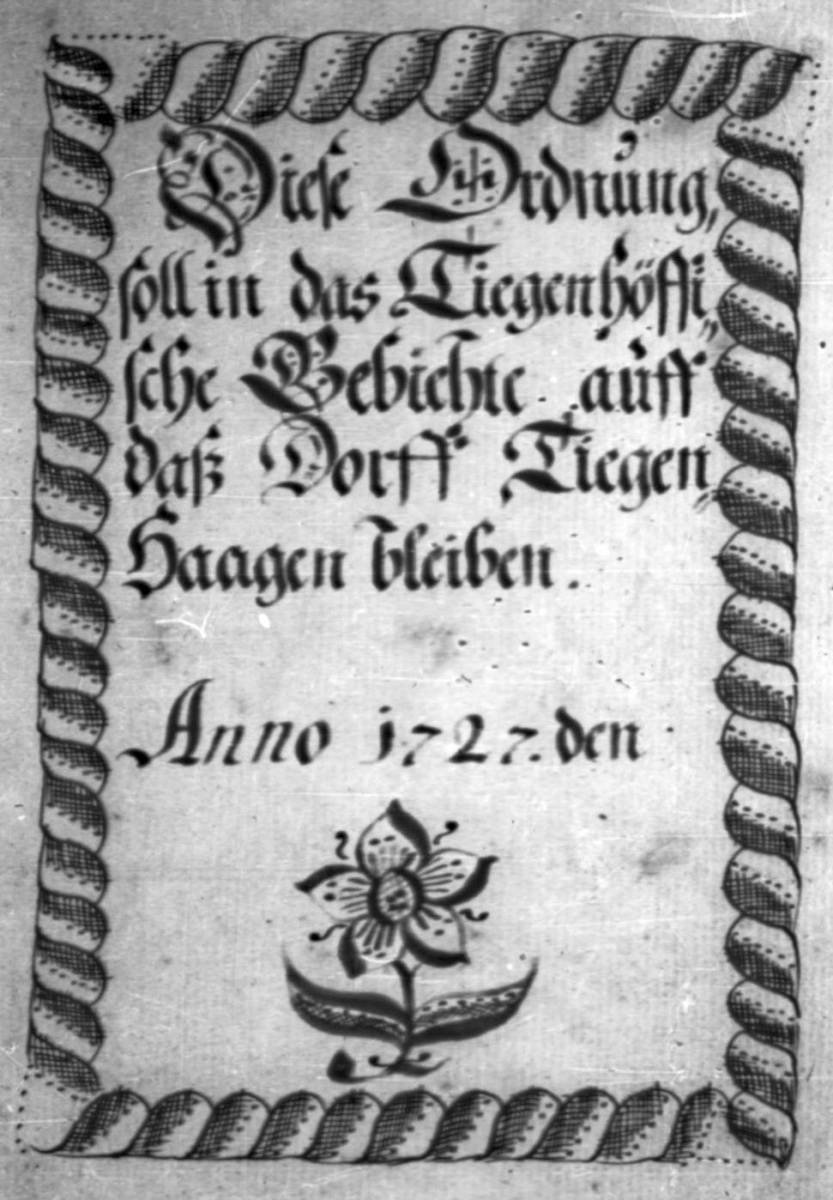 Diese Ordnung,
soll in das Tiegenhöffi„
sche Gebichte auff
daß Dorff Tiegen„
Haagen bleiben.
Anno 1727. den